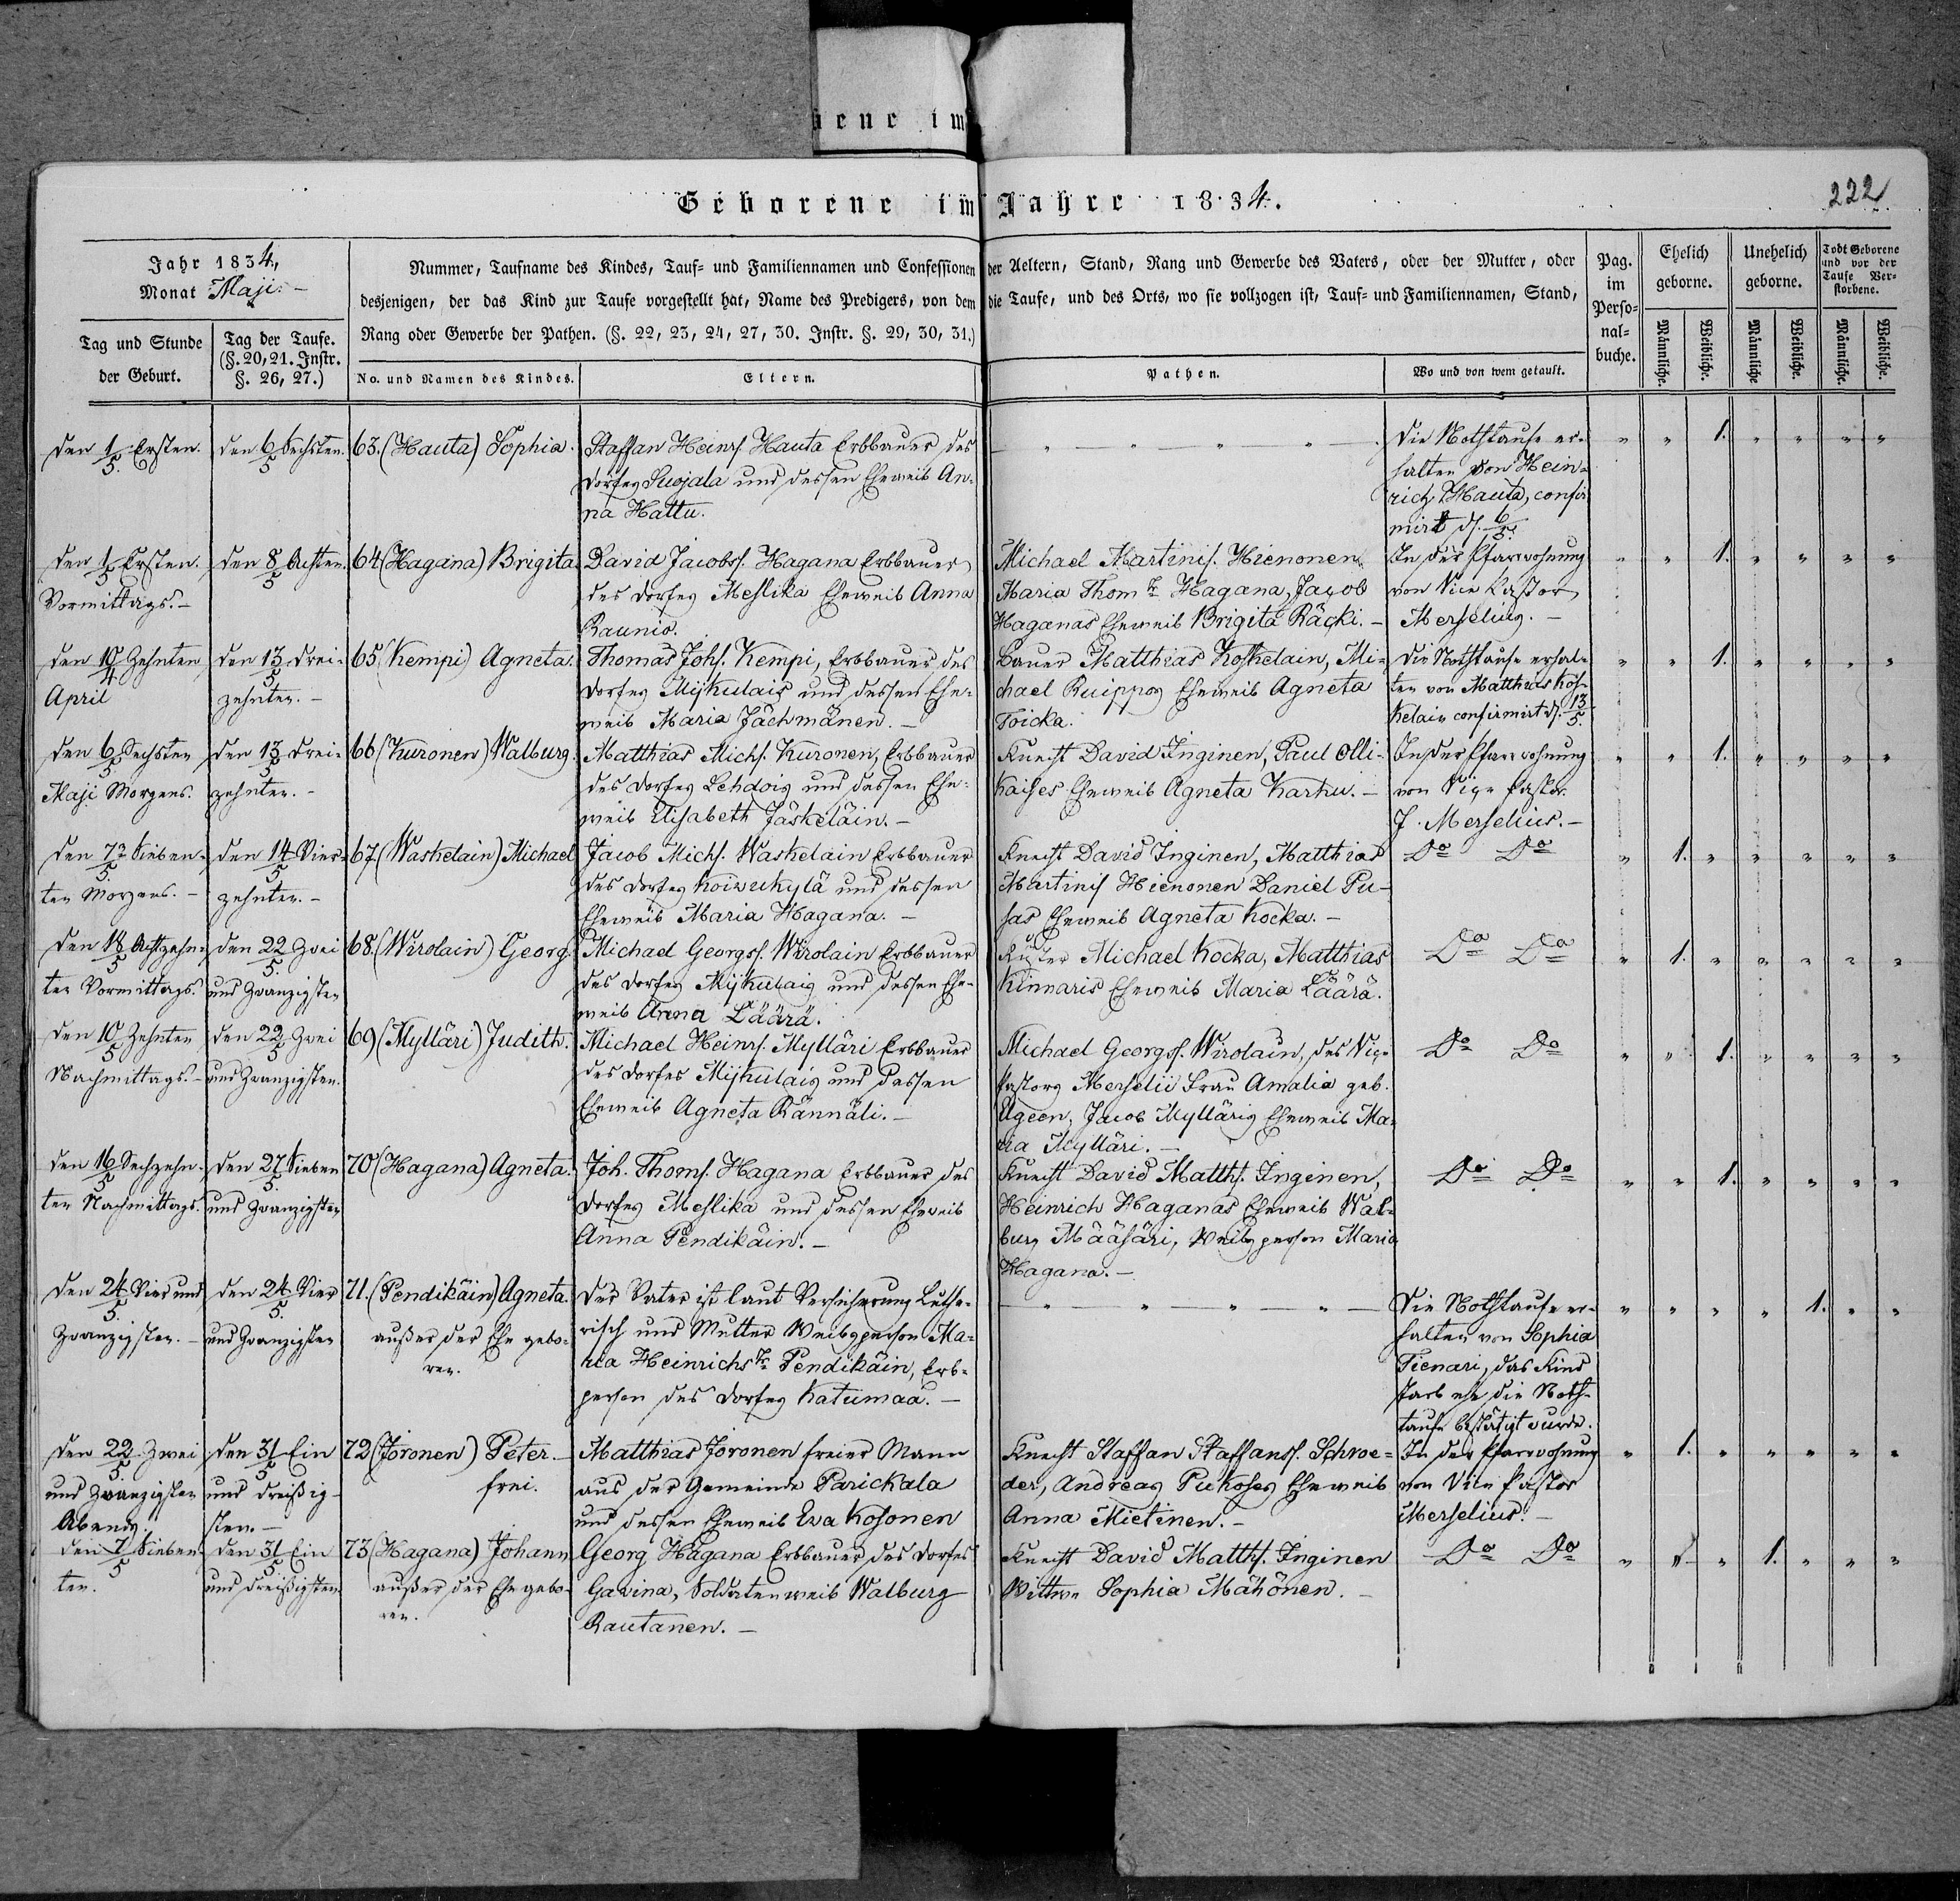 hene im
Geborene im Jahre 1834.
222
Jahr 1834,
Monat Maji. –
Nummer, Taufname des Kindes, Tauf= und Familiennamen und Confessionen der Aeltern, Stand, Rang und Gewerbe des Vaters, oder der Mutter, oder
desjenigen, der das Kind zur Taufe vorgestellt hat, Name des Predigers, von dem die Taufe, und des Orts, wo sie vollzogen ist, Tauf= und Familiennamen, Stand,
Rang oder Gewerbe der Pathen. (§. 22, 23, 24, 27, 30. Instr. §. 29, 30, 31.)
Pag.
im
Perso=
nal=
buche.
Ehelich
geborne.
Unehelich
geborne.
Todt Geborene
und vor der
Taufe Ver=
storbene.
Tag und Stunde
der Geburt.
Tag der Taufe.
(§. 20, 21. Instr.
§. 26, 27.)
No. und Namen des Kindes.
Eltern.
Pathen.
Wo und von wem getauft.
Männliche.
Weibliche.
Männliche
Weibliche.
Männliche.
Weibliche.
den 1/5. Ersten.
den 6/5 Sechsten.
63. (Hauta) Sophia.
Staffan Heinrs. Hauta Erbbauer des
Dorfes Suojala und dessen Eheweib An-
na Hattu.
Die Nothtaufe er-
halten von Hein-
rich Hauta, confir
mirt d. 6/5.
1.
den 1/5 Ersten.
Vormittags. –
den 8/5 Achten.
64 (Hagana) Brigita
David Jacobss. Hagana Erbbauer
des Dorfes Meslika Eheweib Anna
Raunio.
Michael Martinis. Hienonen
Maria Thom Tr Hagana, Jacob
Haganas Eheweib Brigita Räcki. –
In der Pfarrwohnung
von Vice Pastor
Merselius. –
1.
den 10/4 Zehnten
April
den 13/5 Drei-
zehnten. –
65 (Kempi) Agneta.
Thomas Johs. Kempi, Erbbauer des
Dorfes Mijkulais und dessen Ehe-
weib Maria Jächmänen. –
Bauer Matthias Koskelain, Mi-
chael Ruippos Eheweib Agneta
Toicka.
Die Nothtaufe erhal-
ten von Matthias Kos-
kelain confirmirt d. 13/5.
1.
den 6/5 Sechsten
Maji Morgens.
den 13/5 Drei-
zehnten. –
66 (Kuronen) Walburg.
Matthias Michs. Kuronen, Erbbauer
des Dorfes Lehdois und dessen Ehe-
weib Elisabeth Jäskeläin. –
Knecht David Inginen, Paul Olli-
kaises Eheweib Agneta Karhu. –
In der Pfarrwohnung
von Vice Pastor
J. Merselius. –
1.
den 7/5 Sieben-
ten Morgens. –
den 14/5 Vier-
zehnten. –
67 (Waskelain) Michael
Jacob Michs. Waskelain Erbbauer
des Dorfes Koiwukylä und dessen
Eheweib Maria Hagana. –
Knecht David Inginen, Matthias
Martinis Hienonen Daniel Pu-
sas Eheweib Agneta Kocka. –
Do Do
1.
den 18/5 Achtzehn-
ten Vormittags.
den 22/5. Zwei
und Zwanzigsten
68. (Wirolain) Georg.
Michael Georgss. Wirolain Erbbauer
des Dorfes Mijkulais und dessen Ehe-
weib Anna Läärä.
Küster Michael Kocka, Matthias
Kinnaris Eheweib Maria Läärä.
Do Do
1.
den 10/5 Zehnten
Nachmittags. –
den 22/5 Zwei
und Zwanzigsten.
69 (Mylläri) Judith.
Michael Heinrs. Mylläri Erbbauer
des Dorfes Mijkulais und dessen
Eheweib Agneta Rännäli. –
Michael Georgss. Wirolain, des Vice
Pastors Merselii Frau Amalia geb.
Ageen, Jacob Mylläris Eheweib Ma-
ria Mylläri. –
Do Do
1.
den 16/5 Sechzehn-
ten Nachmittags.
den 27/5. Sieben
und Zwanzigsten
70 (Hagana) Agneta.
Joh. Thoms. Hagana Erbbauer des
Dorfes Meslika und dessen Eheweib
Anna Pendikäin. –
Knecht David Matths. Inginen,
Heinrich Haganas Eheweib Wal-
burg Määsäri, Weibsperson Maria
Hagana. –
Do Do
1.
den 24/5. Vier und
Zwanzigsten. –
den 24/5. Vier
und Zwanzigsten
71. (Pendikäin) Agneta.
außer der Ehe gebo-
ren.
Der Vater ist laut Versicherung Luthe-
risch und Mutter Weibsperson Ma-
ria Heinrichs Tr Pendikäin, Erb-
person des Dorfes Katumaa. –
Die Nothtaufe er-
halten von Sophia
Tienari, das Kind
starb ehe die Noth-
taufe bestätigt wurde.
1.
den 22/5. Zwei
und Zwanzigsten
Abends.
den 31/5 Ein
und Dreißig-
sten. –
72 (Joronen) Peter
frei.
Matthias Joronen freier Mann
aus der Gemeinde Parickala
und dessen Eheweib Eva Kosonen
Knecht Staffan Staffanss. Schroe-
der, Andreas Pukoses Eheweib
Anna Mietinen. –
In der Pfarrwohnung
von Vice Pastor
Merselius. –
1.
den 7/5 Sieben-
ten.
den 31/5 Ein
und Dreißigsten
73 (Hagana) Johann
außer der Ehe gebo-
ren.
Georg Hagana Erbbauer des Dorfes
Gavina, Soldatenweib Walburg
Rautanen. –
Knecht David Matths. Inginen
Wittwe Sophia Mähönen. –
Do Do
1.